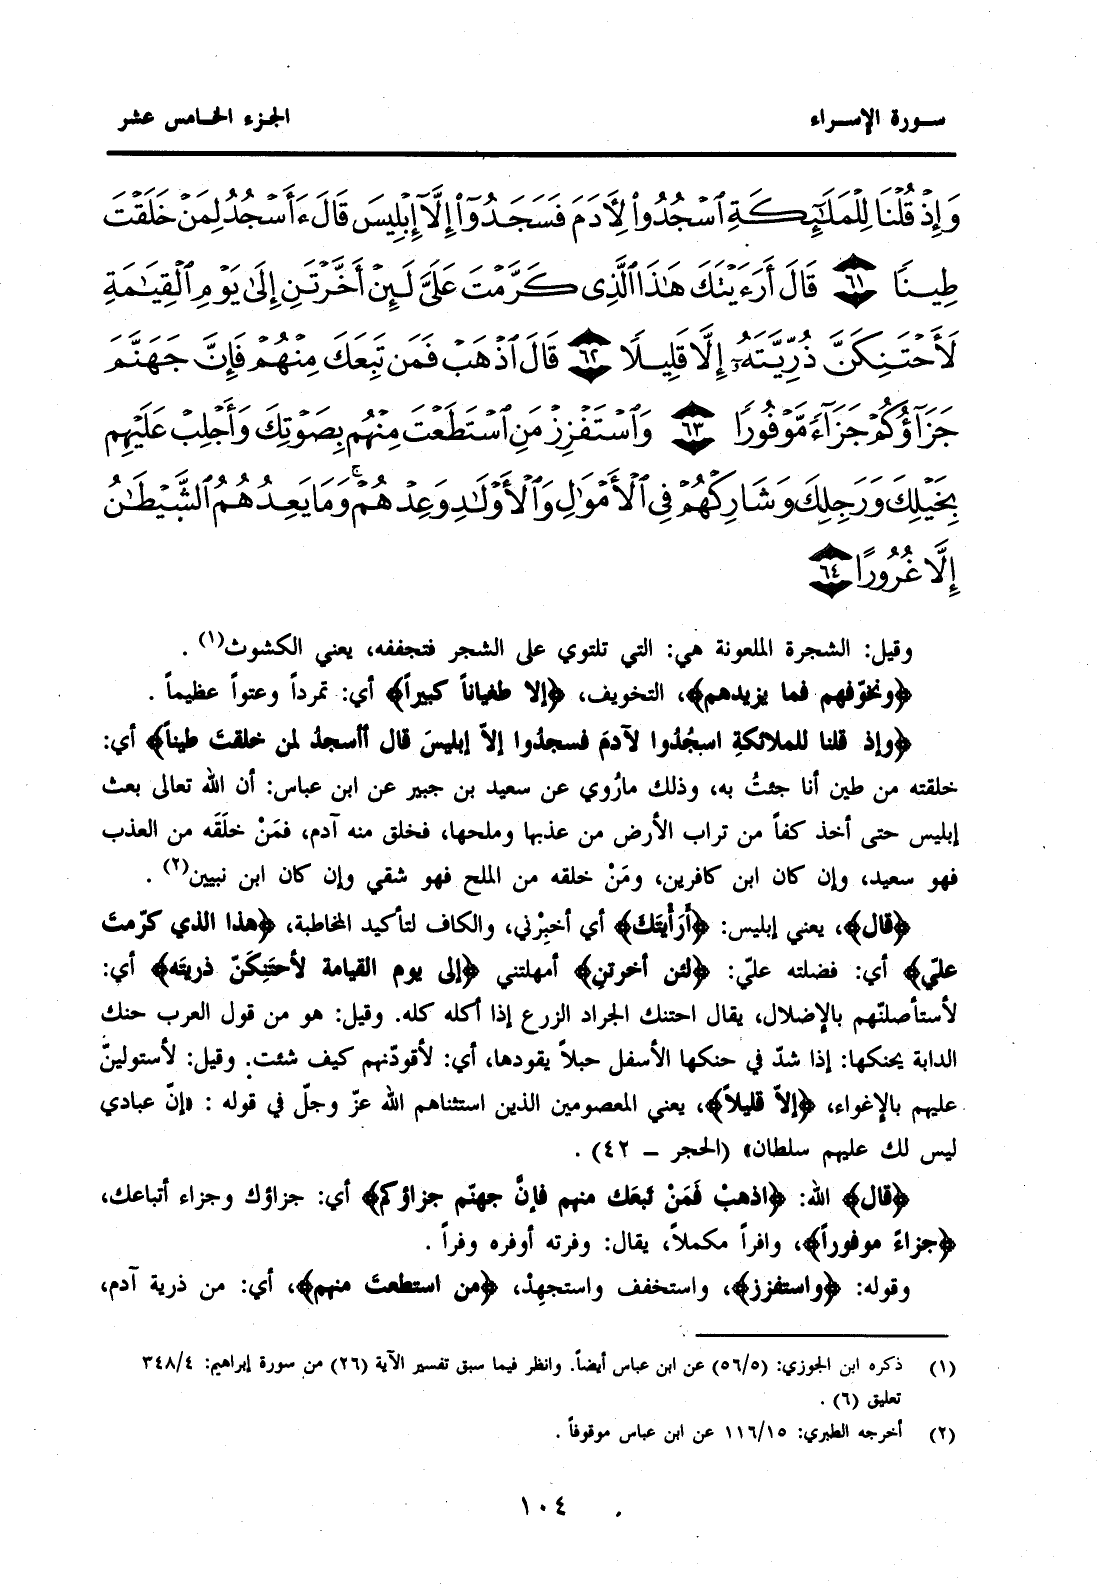 سورة الإسراء
الجزء الخامس عشر
وَإِذْ قُلْنَا لِلْمَلَٰٓئِكَةِ ٱسْجُدُوا۟ لِأَدَمَ فَسَجَدُوٓا۟ إِلَّآ إِبْلِيسَ قَالَ ءَأَسْجُدُ لِمَنْ خَلَقْتَ
طِينًا ٦١ قَالَ أَرَءَيْتَكَ هَٰذَا ٱلَّذِى كَرَّمْتَ عَلَىَّ لَئِنْ أَخَّرْتَنِ إِلَىٰ يَوْمِ ٱلْقِيَٰمَةِ
لَأَحْتَنِكَنَّ ذُرِّيَّتَهُۥٓ إِلَّا قَلِيلًا ٦٢ قَالَ ٱذْهَبْ فَمَن تَبِعَكَ مِنْهُمْ فَإِنَّ جَهَنَّمَ
جَزَآؤُكُمْ جَزَآءً مَّوْفُورًا ٦٣ وَٱسْتَفْزِزْ مَنِ ٱسْتَطَعْتَ مِنْهُم بِصَوْتِكَ وَأَجْلِبْ عَلَيْهِم
بِخَيْلِكَ وَرَجِلِكَ وَشَارِكْهُمْ فِى ٱلْأَمْوَٰلِ وَٱلْأَوْلَٰدِ وَعِدْهُمْ ۚ وَمَا يَعِدُهُمُ ٱلشَّيْطَٰنُ
إِلَّا غُرُورًا ٦٤
وقيل: الشجرة الملعونة هي: التي تلتوي على الشجر فتجففه، يعني الكشوث(١) .
﴿ونخوّفهم فما يزيدهم﴾، التخويف، ﴿إلا طغياناً كبيراً﴾ أي: تمرداً وعتواً عظيماً .
﴿وإذ قلنا للملائكةِ اسجُدُوا لآدمَ فسجدُوا إلاّ إبليسَ قال أأسجدُ لمن خلقتَ طيناً﴾ أي:
خلقته من طين أنا جئتُ به، وذلك مارُوي عن سعيد بن جبير عن ابن عباس: أن الله تعالى بعث
إبليس حتى أخذ كفاً من تراب الأرض من عذبها وملحها، فخلق منه آدم، فمَنْ خلَقَه من العذب
فهو سعيد، وإن كان ابن كافرين، ومَنْ خلقه من الملح فهو شقي وإن كان ابن نبيين(٢) .
﴿قال﴾، يعني إبليس: ﴿أَرَأَيتَكَ﴾ أي أخبِرْني، والكاف لتأكيد المخاطبة، ﴿هذا الذي كرّمتَ
عليّ﴾ أي: فضلته عليّ: ﴿لئن أخرتنِ﴾ أمهلتني ﴿إلى يوم القيامة لأحتَنِكَنّ ذريتَه﴾ أي:
لأستأصلنّهم بالإضلال، يقال احتنك الجراد الزرع إذا أكله كله. وقيل: هو من قول العرب حنك
الدابة يحنكها: إذا شدّ في حنكها الأسفل حبلاً يقودها، أي: لأقودّنهم كيف شئت. وقيل: لأستولينّ
عليهم بالإغواء، ﴿إلاّ قليلاً﴾، يعني المعصومين الذين استثناهم الله عزّ وجلّ في قوله : «إنّ عبادي
ليس لك عليهم سلطان» (الحجر – ٤٢) .
﴿قال﴾ الله: ﴿اذهبْ فَمَنْ تَبعَك منهم فإنَّ جهنّم جزاؤكم﴾ أي: جزاؤك وجزاء أتباعك،
﴿جزاءً موفوراً﴾، وافراً مكملاً، يقال: وفرته أوفره وفراً .
وقوله: ﴿واستفزز﴾، واستخفف واستجهِدْ، ﴿من استطعتَ منهم﴾، أي: من ذرية آدم،
(١) ذكره ابن الجوزي: (٥٦/٥) عن ابن عباس أيضاً. وانظر فيما سبق تفسير الآية (٢٦) من سورة إبراهيم: ٣٤٨/٤
تعليق (٦) .
(٢) أخرجه الطبري: ١١٦/١٥ عن ابن عباس موقوفاً .
١٠٤